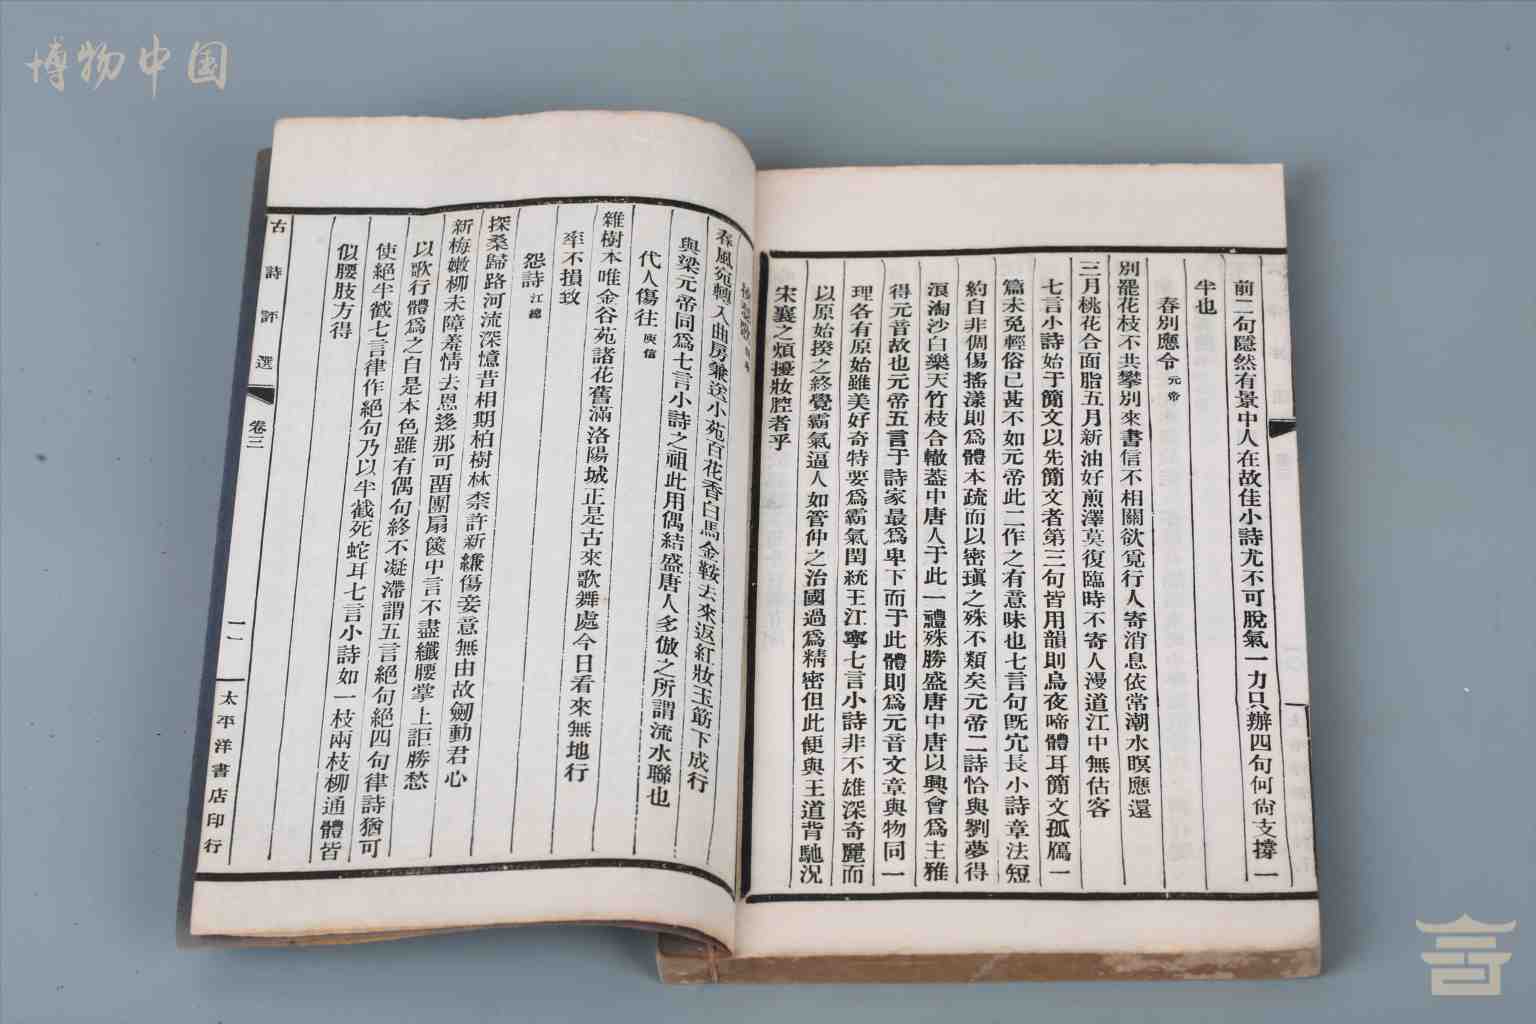 博物中国
前二句隱然有景中人在故佳小詩尤不可脫氣一力只辦四句何尙支撐一
半也
春別應令 元帝
別罷花枝不共攀別來書信不相關欲覓行人寄消息依常潮水暝應還
三月桃花合面脂五月新油好煎澤莫復臨時不寄人漫道江中無估客
七言小詩始于簡文以先簡文者第三句皆用韻則烏夜啼體耳簡文孤鴈一
篇未免輕俗已甚不如元帝此二作之有意味也七言句旣宂長小詩章法短
約自非倜傷搖漾則爲體本疏而以密瑱之殊不類矣元帝二詩恰與劉夢得
浪淘沙白樂天竹枝合轍葢中唐人于此一禮殊勝盛唐中唐以興會爲主雅
得元音故也元帝五言于詩家最爲卑下而于此體則爲元音文章與物同一
理各有原始雖美好奇特要爲霸氣閏統王江寧七言小詩非不雄深奇麗而
以原始揆之終覺霸氣逼人如管仲之治國過爲精密但此便與王道背馳況
宋襄之煩擾妝腔者乎
春風宛轉入曲房兼送小苑百花香白馬金鞍去未返紅妝玉筯下成行
與梁元帝同爲七言小詩之祖此用偶結盛唐人多倣之所謂流水聯也
代人傷往 庾信
雜樹本唯金谷苑諸花舊滿洛陽城正是古來歌舞處今日看來無地行
率不損致
怨詩 江總
採桑歸路河流深憶昔相期柏樹林柰許新縑傷妾意無由故劒動君心
新梅嫩柳未障羞情去恩迻那可畱團扇篋中言不盡纖腰掌上詎勝愁
以歌行體爲之自是本色雖有偶句終不凝滯謂五言絕句絕四句律詩猶可
使絕半截七言律作絕句乃以半截死蛇耳七言小詩如一枝兩枝柳通體皆
似腰肢方得
古詩評選
卷三
一一
太平洋書店印行